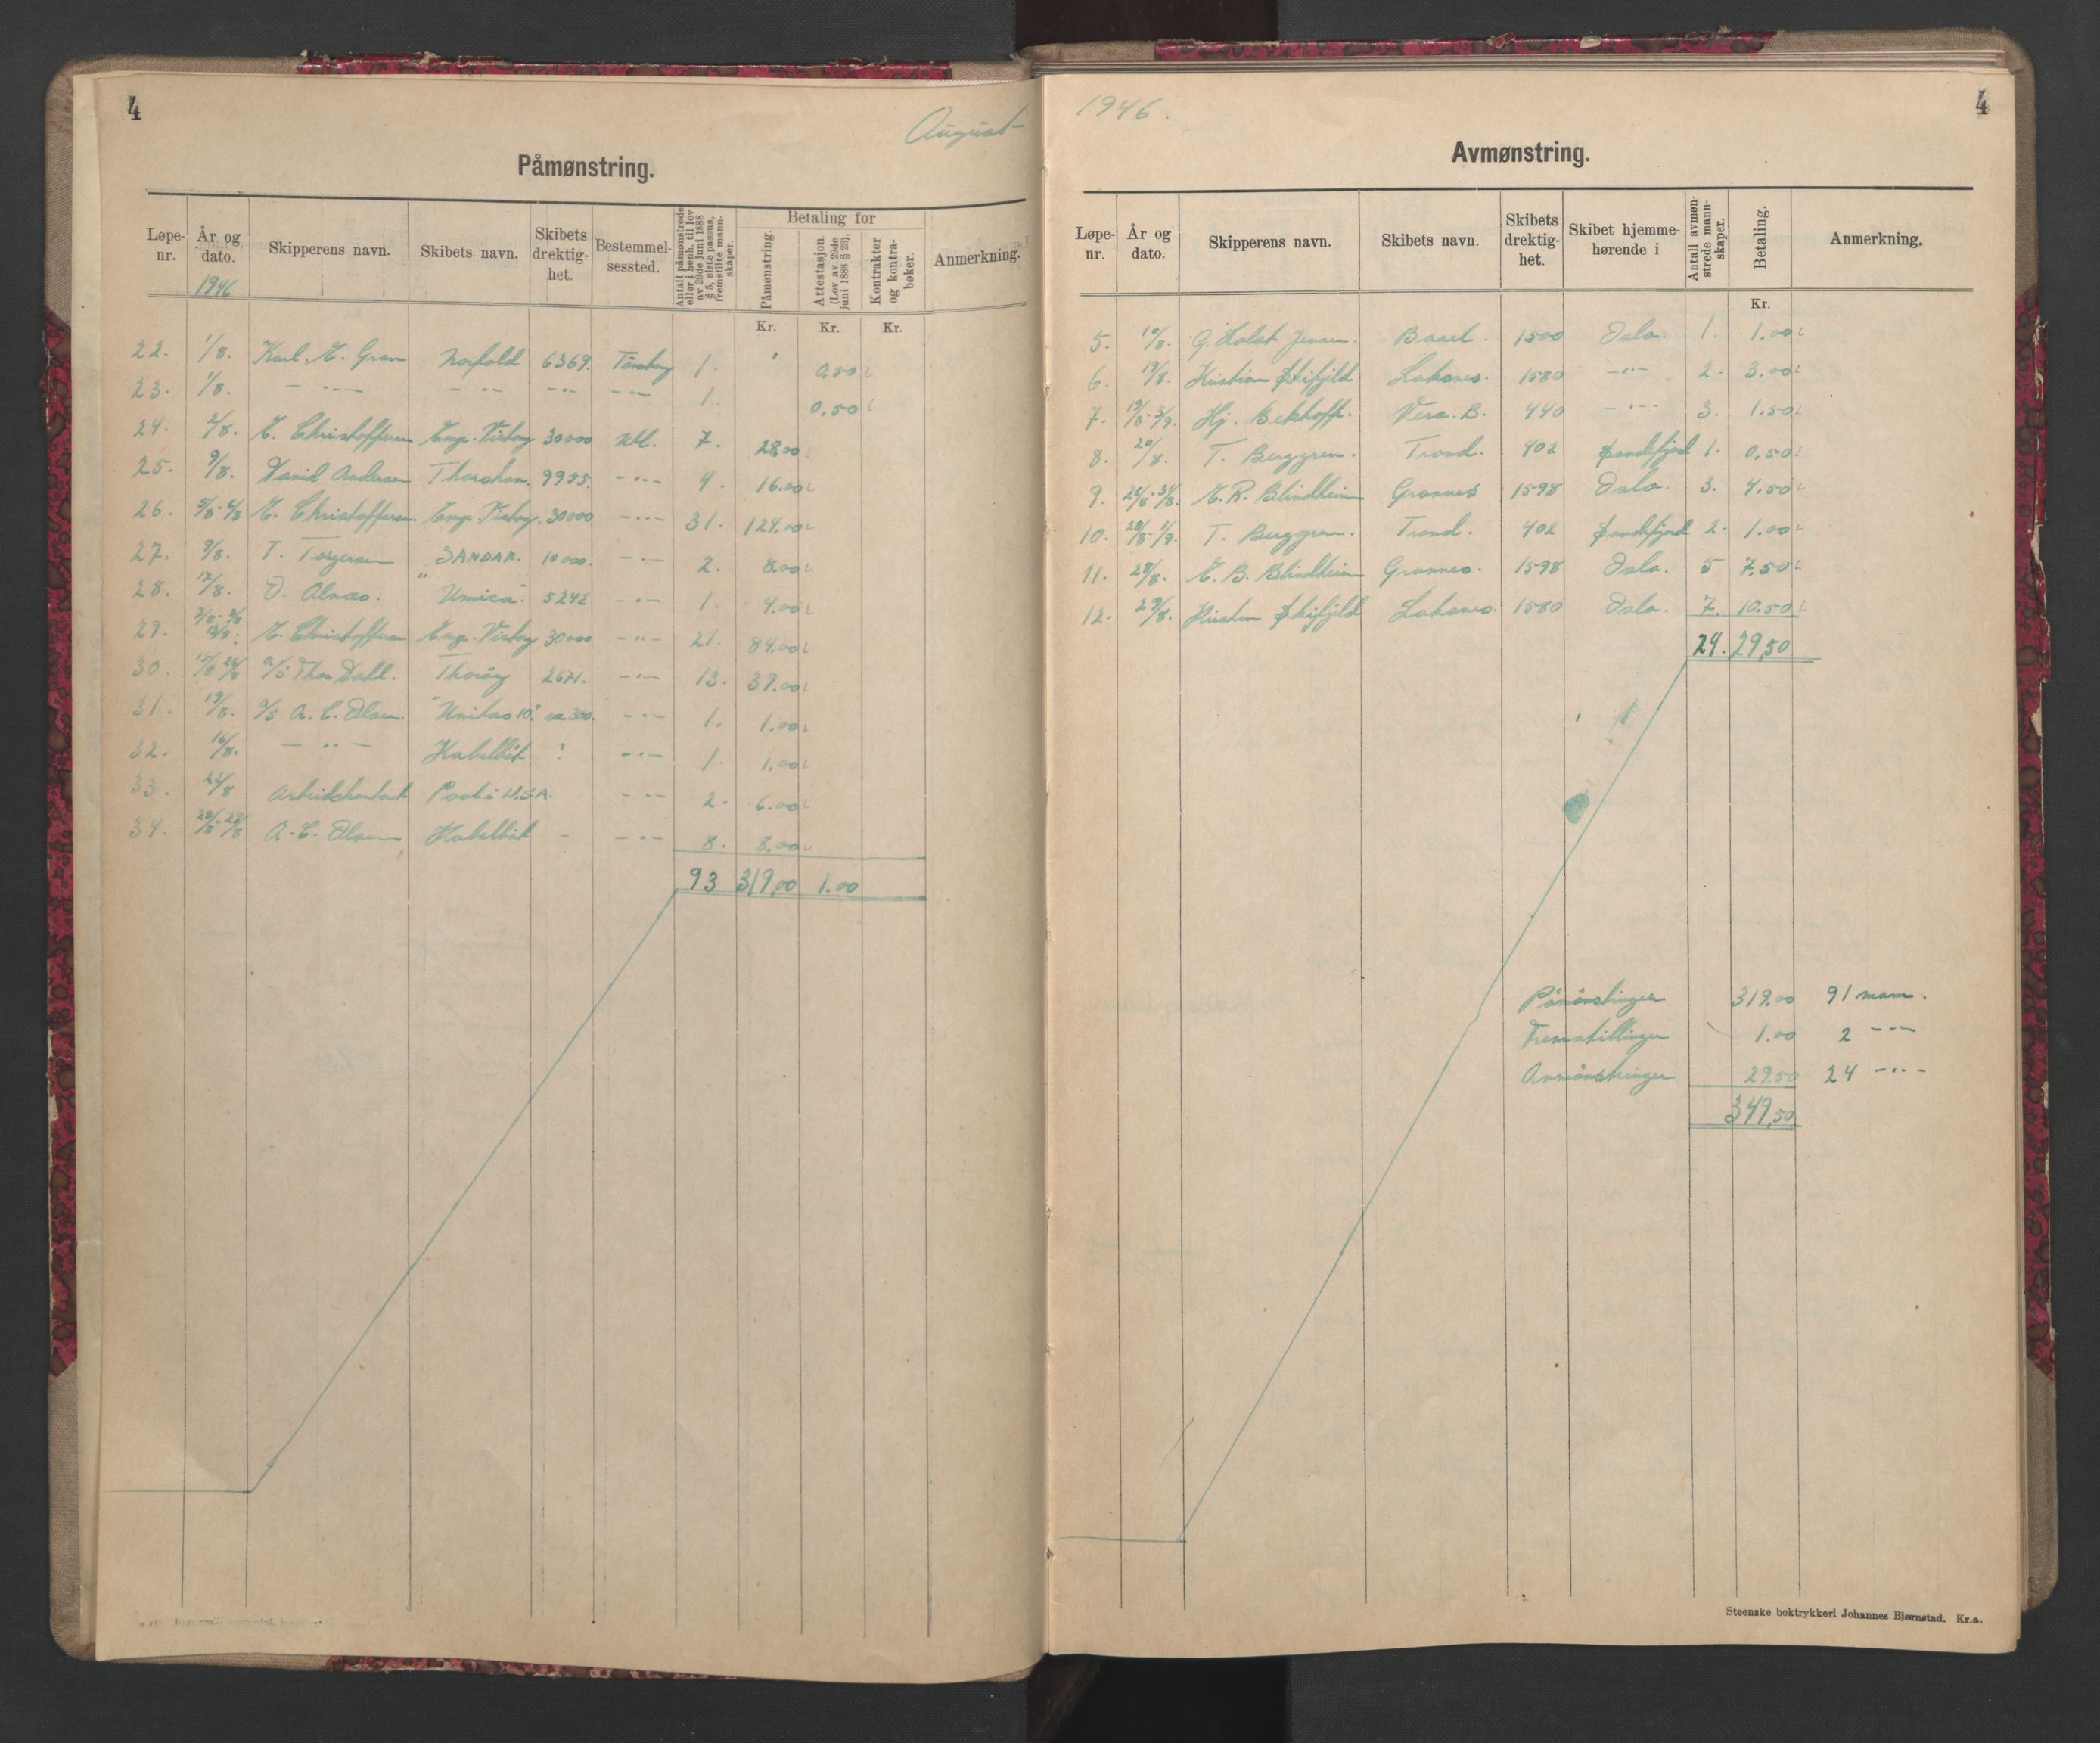 4
August
Påmønstring.
Løpe-nr. År og dato. Skipperens navn. Skibets navn. Skibets drektig-het. Bestemmel-sessted. Antall påmønstrede eller i henh. til lov av 29de juni 1888 § 5, siste passus, fremstilte mann-skaper. Betaling for Påmønstring. Attestasjon (Lov av 29de juni 1888 § 23). Kontrakter og kontra-bøker. Anmerkning.
1946
Kr. Kr. Kr.
22. 1/8. Karl. E. Gran Norfold 6369. Tönsberg 1. 0.50
23. 1/8. — „ — — „ — — „ — — „ — 1. 0.50
24. 2/8. E. Christoffersen Emp. Victory 30000 Utl. 7. 28.00
25. 9/8. David Andersen Thorshov. 9955. — „ — 4. 16.00
26. 5/8-6/8 E. Christoffersen Emp. Victory. 30000 — „ — 31. 124.00
27. 9/8. T. Torgersen SANDAR. 10000. — „ — 2. 8.00
28. 12/8. O. Alnæs. "Umica" 5242 — „ — 1. 4.00
29. 13/8. E. Christoffersen Emp. Victory 30000 — „ — 21. 84.00
30. 15/8-26/8 A/S Thor Dahl. Thoröy 2671. — „ — 13. 39.00
31. 19/8. A/S A. C. Olsen. "Unitas 10" ca 300. — „ — 1. 1.00
32. 16/8. — „ — Hvalbåt ? — „ — 1. 1.00
33. 22/8 Arbeidskontoret Pool i U.S.A. — „ — 2. 6.00
34. 20/8-22/8 A. C. Olsen Hvalbåt - — „ — 8. 8.00
93 319,00 1.00
1946.
4
Avmønstring.
Løpe-nr. År og dato. Skipperens navn. Skibets navn. Skibets drektig-het. Skibet hjemme-hørende i Antall avmøn-strede mann-skaper. Betaling. Anmerkning.
Kr.
5. 10/8. G. Holst Jensen. Basel. 1500 Oslo. 1. 1.00
6. 19/8. Kristian Skifjeld Lohanes. 1580 — „ — 2. 3.00
7. 19/8-3/9. Hj. Bekhoff. Vera. B. 440 — „ — 3. 1.50
8. 20/8. T. Berggren. Trond. 402 Sandefjord 1. 0.50
9. 26/8-31/8. E. R. Blindheim Grannes 1598 Oslo. 3. 4.50
10. 28/8-1/9. T. Berggren. Trond. 402 Sandefjord 2. 1.00
11. 28/8. E. B. Blindheim Grannes. 1598 Oslo. 5 7.50
12. 29/8. Kristian Skifjeld Lohanes. 1580 Oslo. 7. 10.50
24. 29,50
Påmönstringer 319.00 91 mann.
Fremstillinger 1.00 2 — „ —
Avmönstringer 29.50 24 — „ —
349,50
Steenske boktrykkeri Johannes Bjørnstad. Kr.a.